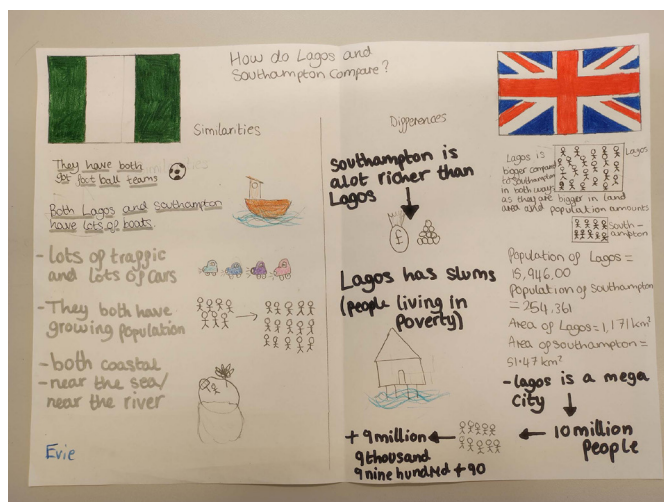 How do Lagos and
Southampton Compare?
Similarities
They have both
got foot ball teams
Both Lagos and Southampton
have lots of boats.
- lots of traffic
and lots of cars
- They both have
growing population
- both coastal
- near the sea/
near the river
Evie
Differences
Southampton is
alot richer than
Lagos
£
Lagos has slums
(people living in
Poverty)
Lagos is
bigger compared
to Southampton
in both ways
as they are bigger in land
area and population amounts
Lagos
South-
ampton
Population of Lagos =
15,946,00
Population of Southampton
= 254,361
Area of Lagos = 1,171 km²
Area of Southampton =
51.47 km²
- lagos is a mega
city
10 million
people
+ 9 million
9 thousand
9 nine hundred + 90